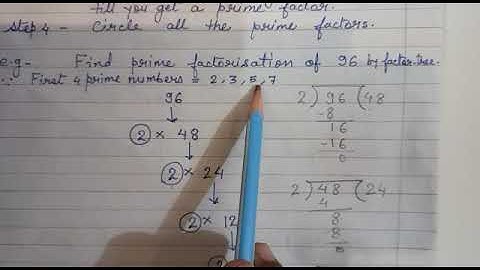 till you get a prime factor.
Step 4 - Circle all the prime factors.
e.g- Find prime factorisation of 96 by factor tree.
∵ First 4 prime numbers = 2, 3, 5, 7
96
2 × 48
2 × 24
2 × 12
2
2) 96 (48
-8
16
-16
0
2) 48 (24
4
8
8
0